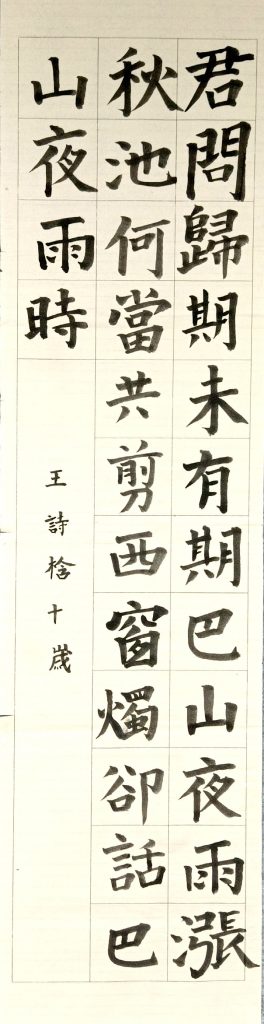 君問歸期未有期巴山夜雨漲
秋池何當共剪西窗燭卻話巴
山夜雨時
王詩捨十歲